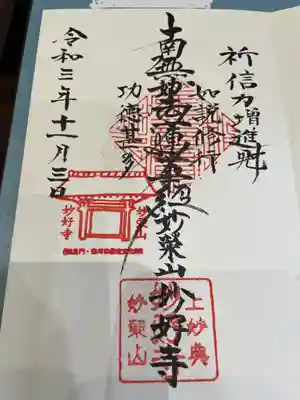 祈信力増進処
如説修行
南無妙法蓮華経
妙栄山妙好寺
功徳甚多
令和三年十一月三日
妙栄山
妙好寺
上妙典
妙栄山